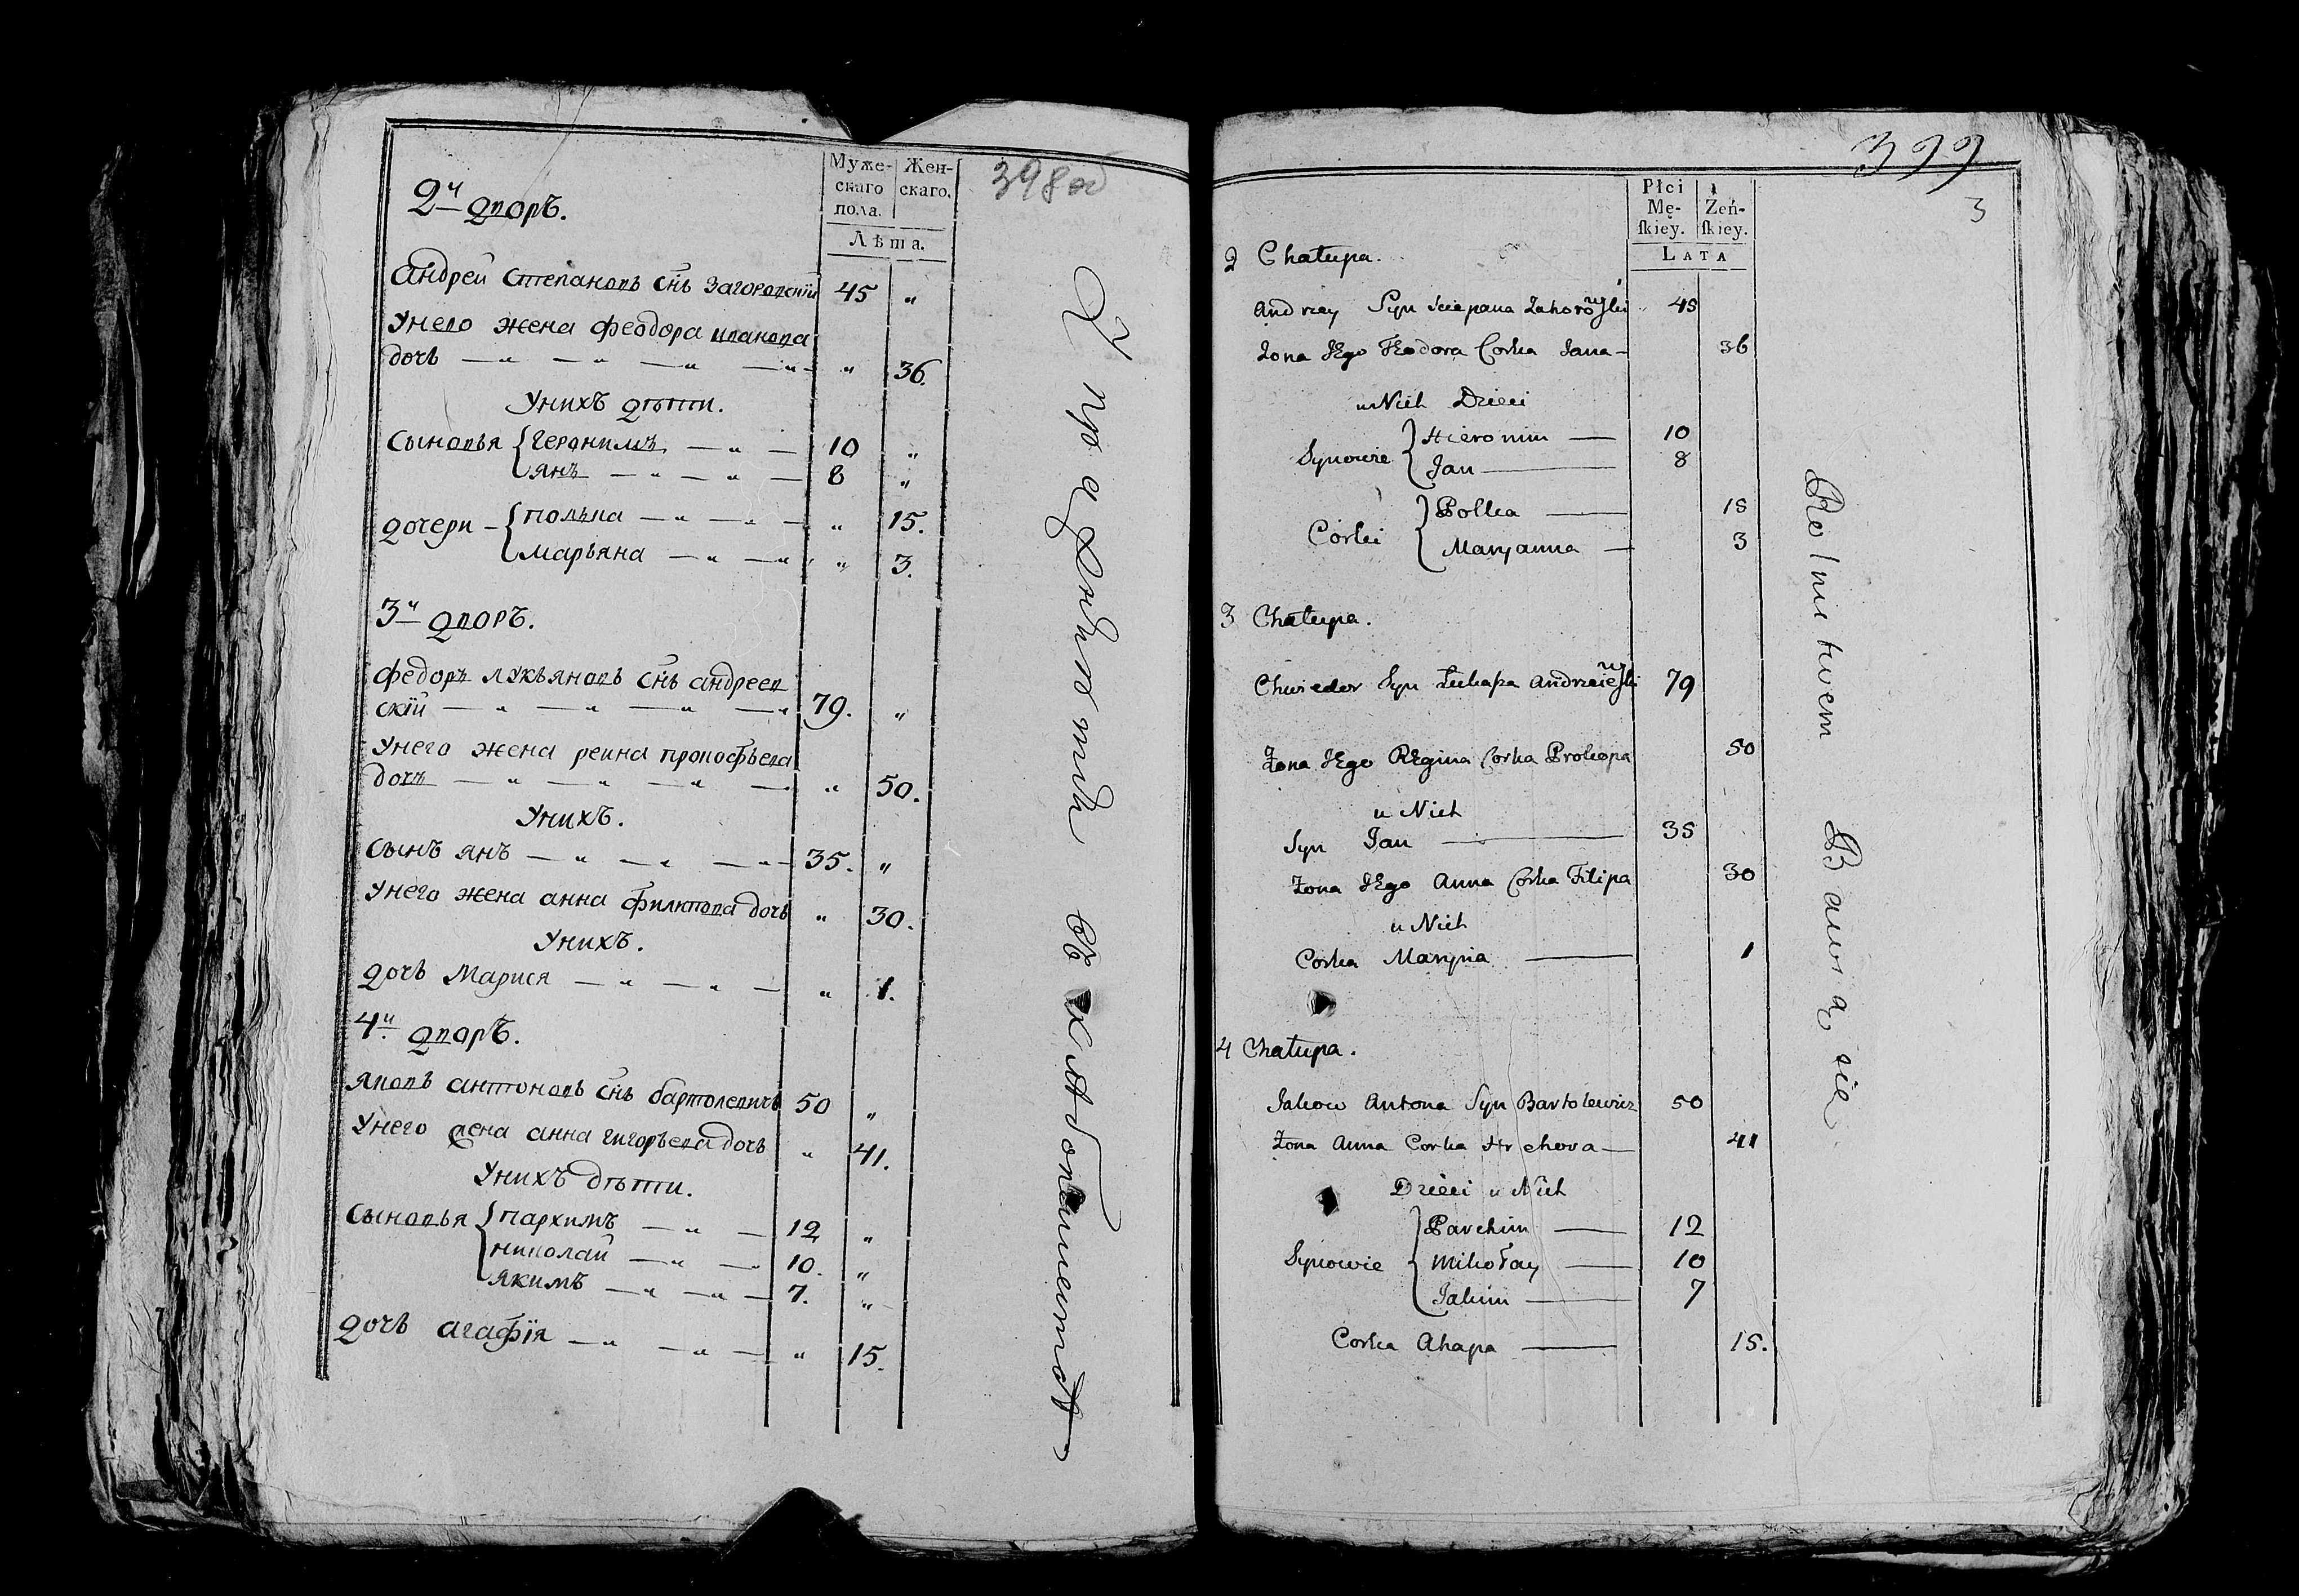 398 об
Муже-
скаго
пола.
Жен-
скаго.
Лѣта.
2й дворъ.
Андрей Степановъ снъ Загоровскій 45 "
У него жена Феодора Иванова
дочь — " — " — " — " " 36.
У нихъ дѣти.
Сыновья { Геронимъ — " — 10 "
Янъ — " — " — 8 "
Дочери — { Полька — " — " — " 15.
Марьяна — " — " " 3.
3й дворъ.
Федоръ Лукьяновъ снъ Андреев
скій — " — " — " — " 79. "
У него жена Реина Прокофьева
дочь — " — " — " — " 50.
У нихъ.
Сынъ Янъ — " — " — " — 35. "
У него жена Анна Филипова дочь " 30.
У нихъ.
Дочь Марися — " — " — " 1.
4й дворъ.
Яковъ Антоновъ снъ Бартолевичъ 50 "
У него жена Анна Григорьева дочь " 41.
У нихъ дѣти.
Сыновья { Пархимъ — " — 12 "
Николай — " — " 10. "
Якимъ — " — " — 7. "
Дочь Агафія — " — " — " 15.
399
3
Płci
Mę-
ſkiey.
Żeń-
ſkiey.
LATA
2 Chałupa.
Andrzey Syn Sciepana Zahorowſki 45
Żona JEgo Teodora Corka Jana — 36
u Nich Dzieci
Synowie { Hieronim — 10
Jan — 8
Córki { Polka — 15
Maryanna — 3
3 Chałupa.
Chwiedor Syn Łukaſza Andrzeiewſki 79
Żona JEgo REgina Corka Prokopa 50
u Nich
Syn Jan — 35
Żona JEgo Anna Corka Filipa 30
u Nich
Corka Marysia — 1
4 Chałupa.
Jakow Antona Syn Bartolewicz 50
Żona Anna Corka Hrehora — 41
Dzieci u Nich
Synowie { Parchim — 12
Mikołay — 10
Jakim — 7
Corka Ahapa — 15.
Rolnictwem Bawią się